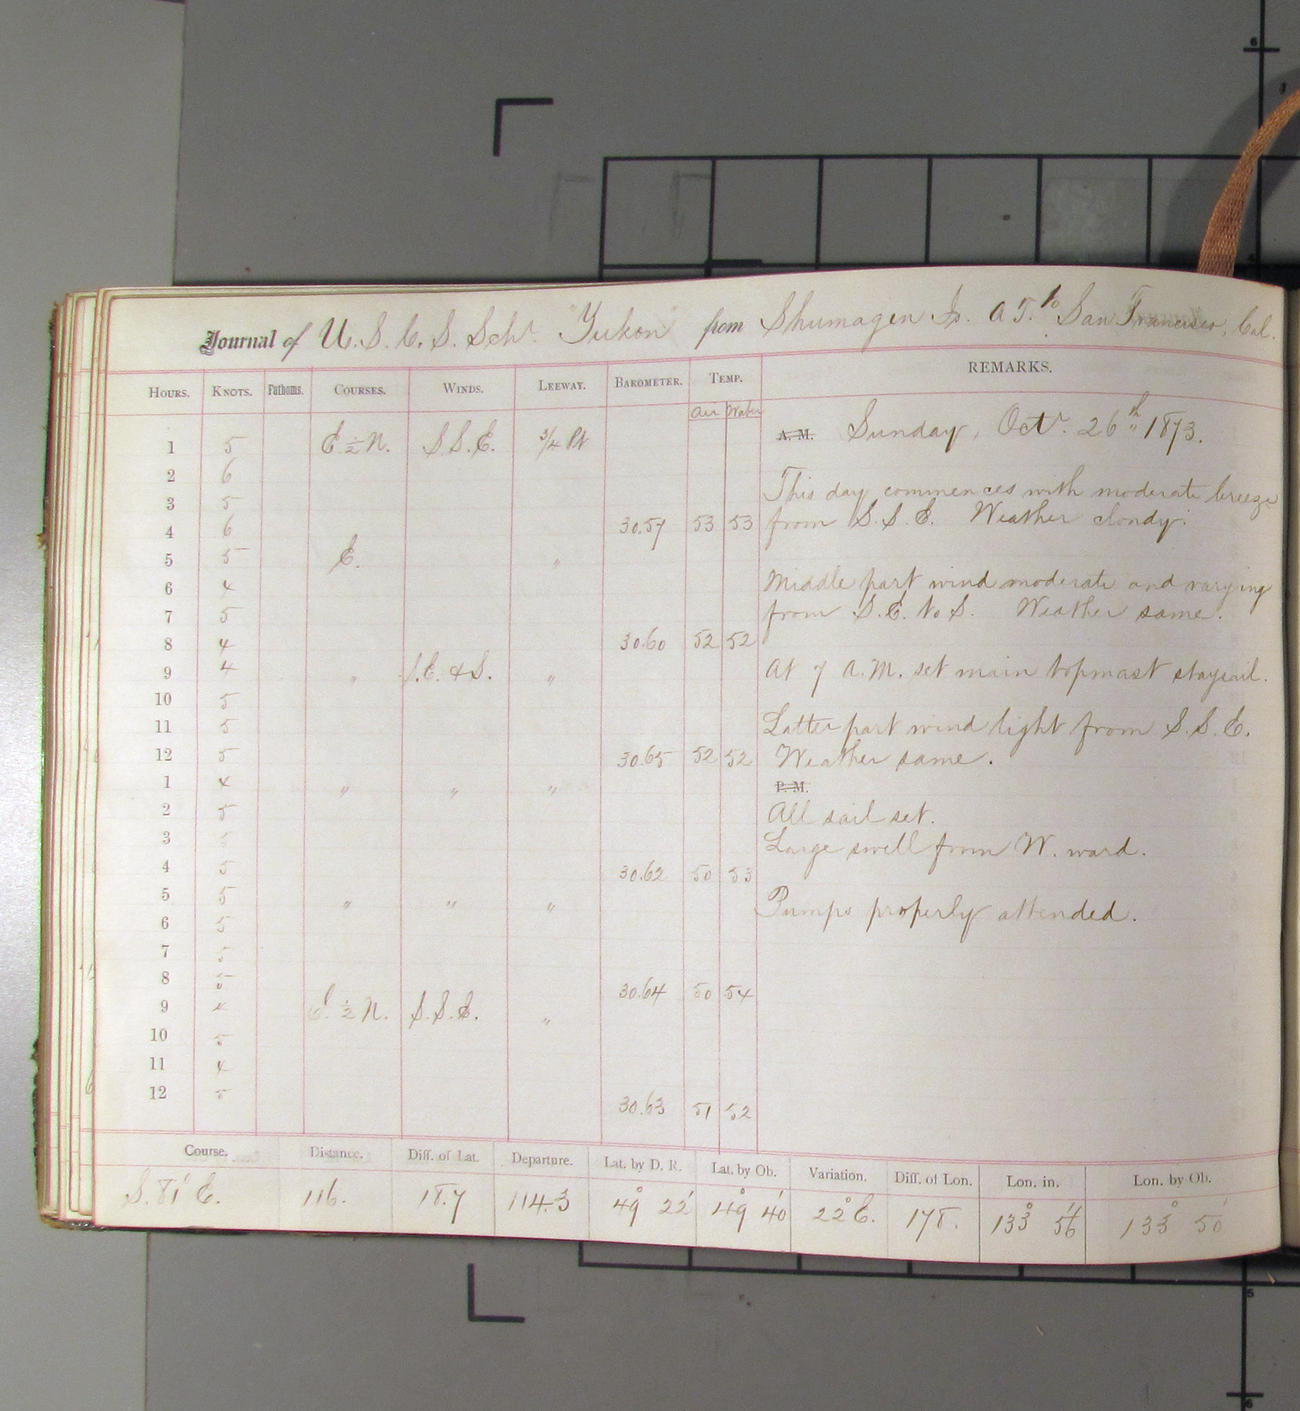 Journal of U. S. C. S. Schr. "Yukon" from Shumagen Is. A.T. to San Francisco, Cal.
HOURS. KNOTS. Fathoms. COURSES. WINDS. LEEWAY. BAROMETER. TEMP. REMARKS.
Air Water
A. M. Sunday, Oct. 26th 1873.
1 5 E. ½ N. S.S.E. 3/4 Pt
2 6
This day commences with moderate breeze
3 5
from S. S. E. Weather cloudy.
4 6 30.57 53 53
5 5 E. "
6 4
Middle part wind moderate and varying
7 5
from S.E. to S. Weather same.
8 4 30.60 52 52
9 4 " S.E. & S. "
At 7 A.M. set main topmast staysail.
10 5
11 5
Latter part wind light from S. S. E.
12 5 30.65 52 52
Weather same.
1 4 " " "
P. M.
2 5
All sail set.
3 5
Large swell from W. ward.
4 5 30.62 50 53
5 5 " " "
Pumps properly attended.
6 5
7 5
8 5 30.64 50 54
9 4 E. ½ N. S.S.E. "
10 5
11 4
12 5 30.63 51 52
Course. Distance. Diff. of Lat. Departure. Lat. by D. R. Lat. by Ob. Variation. Diff. of Lon. Lon. in. Lon. by Ob.
S. 81° E. 116. 18.7 114.3 49° 22' 49° 40' 22° E. 178. 133° 56' 133° 50'